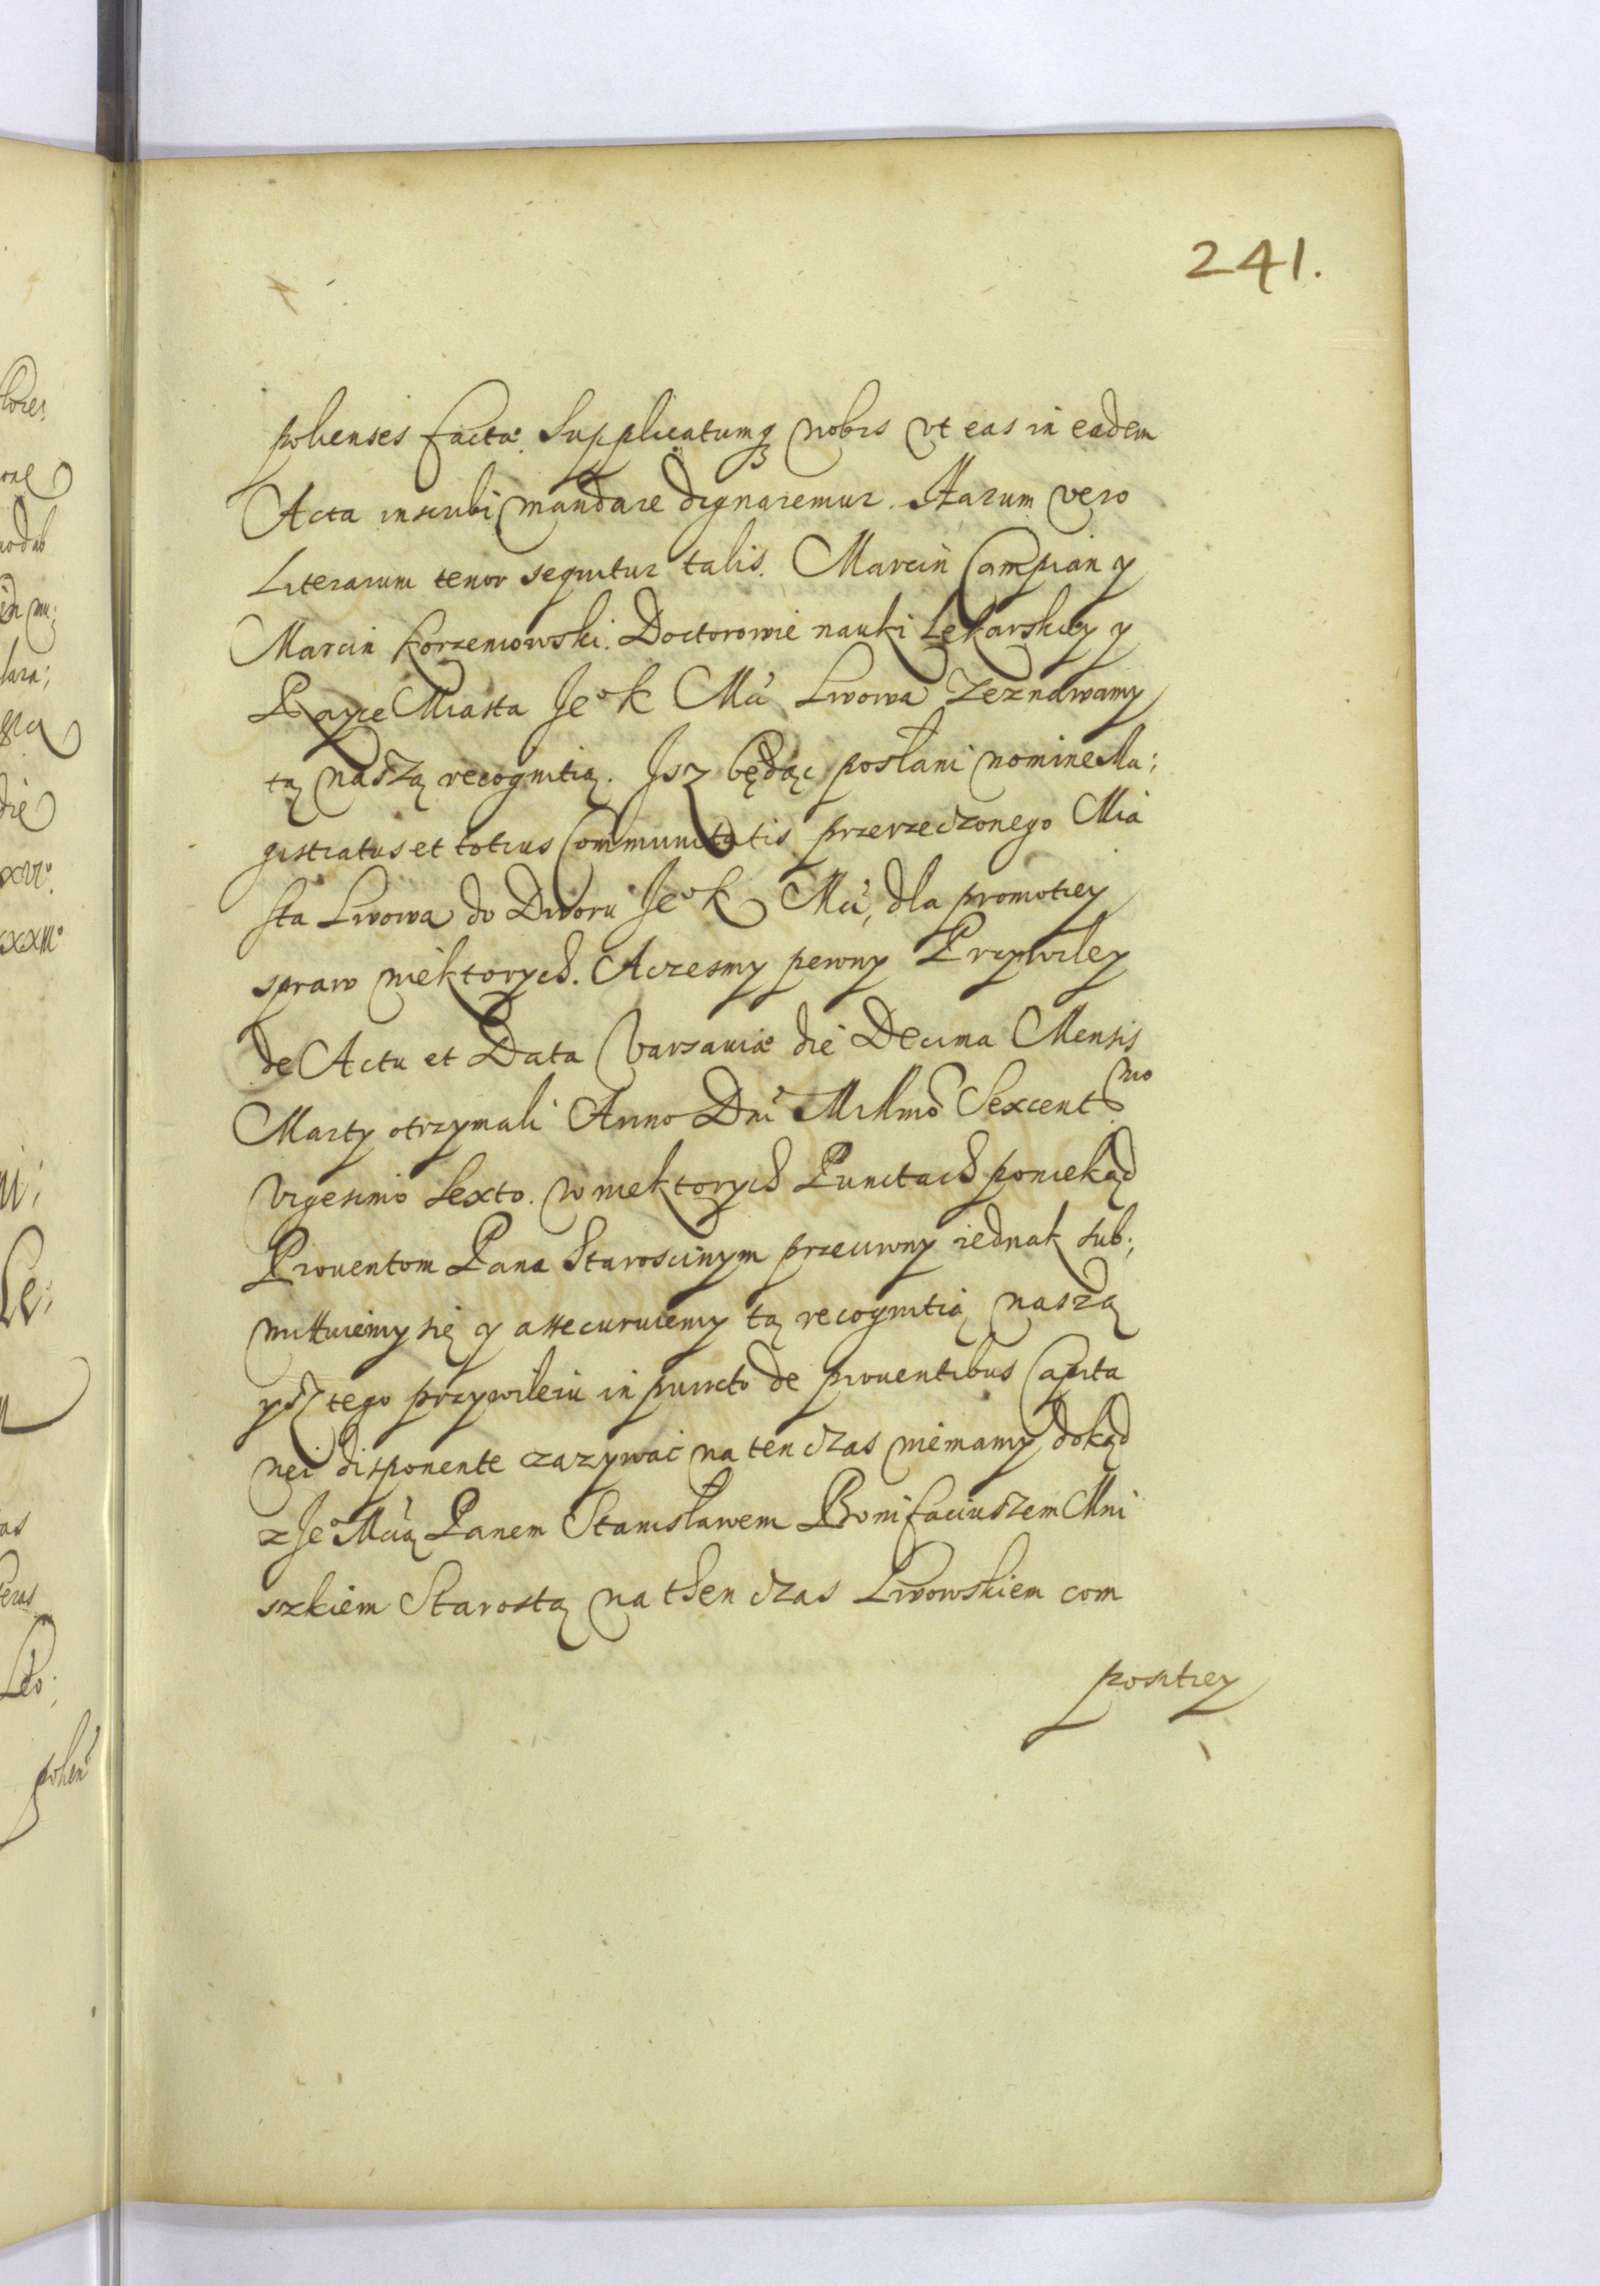 241.
polienses factæ. Supplicatumq nobis vt eas in eadem
Acta inscribi mandare dignaremur. Harum vero
Literarum tenor sequitur talis. Marcin Campian y
Marcin Korzeniowski. Doctorowie nauki Lekarskiey y
Rayce Miasta Je° K Mći Lwowa Zeznawamy
tą naszą recognitią. Jsz będąc posłani nomine Ma;
gistratus et totius Communitatis przerzeczonego Mia
sta Lwowa do Dworu Je° K Mći, dla promotiey
spraw niektorych. Aczesmy pewny Przywiley
de Actu et Data Varsaviæ die Decima Mensis
Marty otrzymali Anno Dni Millmo Sexcentmo
Vigesimo Sexto. w niektorych Punctach poniekąd
Prouentom Pana Staroscinym przeciwny iednak sub;
mittuiemy się y assecuruiemy tą recognitią naszą
ysz tego przywileiu in puncto de prouentibus Capita
nei disponente zazywać na ten czas niemamy dokąd
z Je° Mcią Panem Stanisławem Bonifaciuszem Mni
szkiem Starostą na then czas Lwowskiem com
positiey